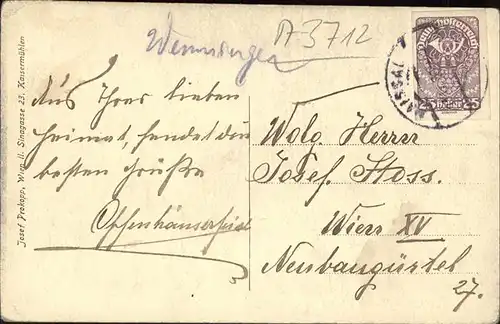 Josef Prokopp, Wien II. Sinagasse 23. Kaisermühlen
A 3712
Deutschösterreich
25 Heller 25
Aus Ihrer lieben
Heimat, sendet die
besten Grüße
Wolg. Herrn
Josef Stoss.
Wien XV
Neubaugürtel
27.